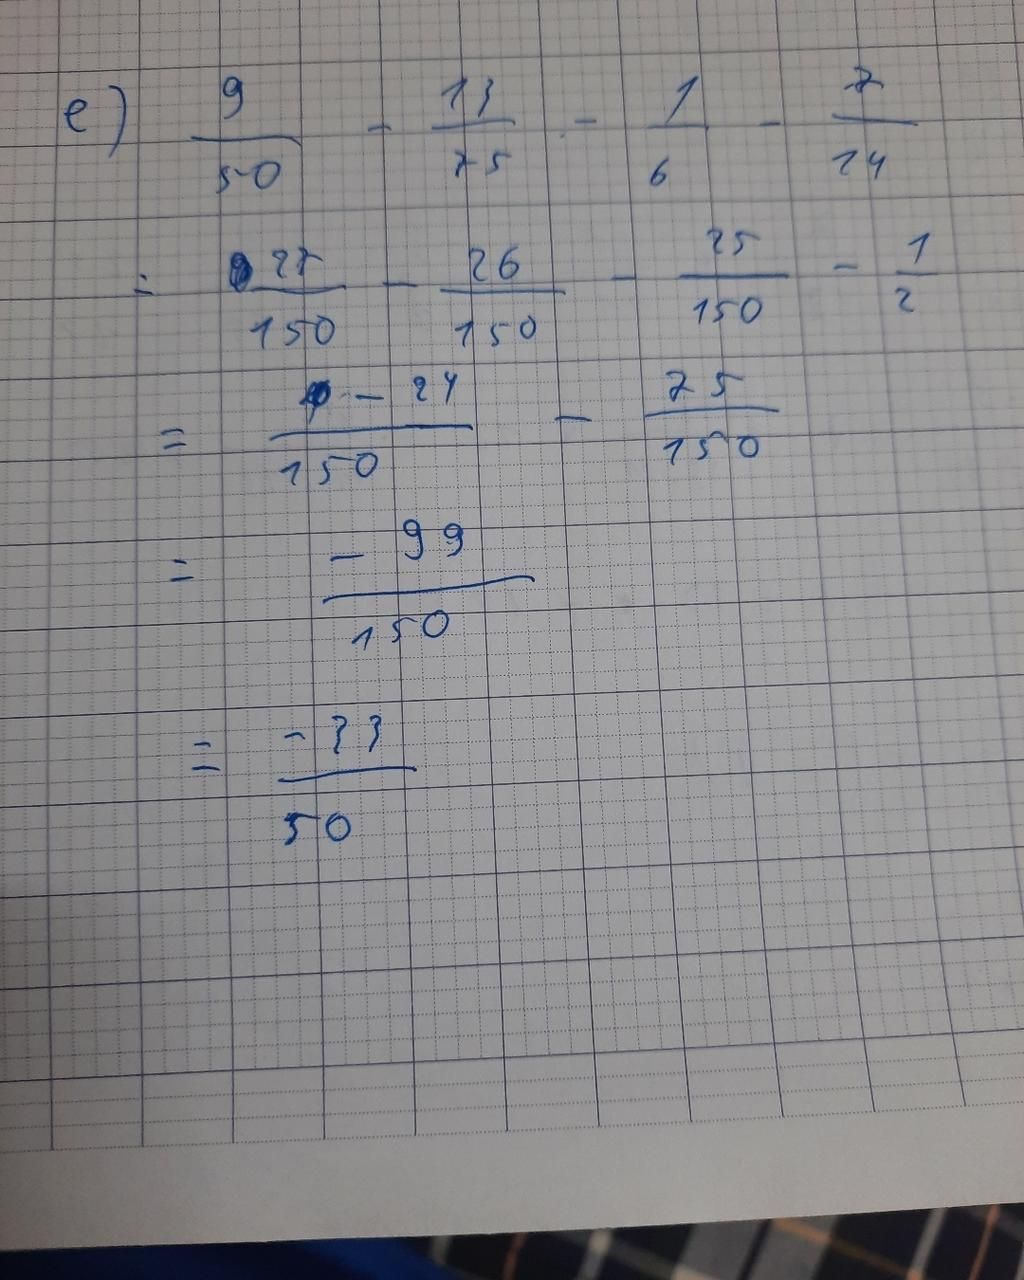 e) 9/50 - 13/75 - 1/6 - 7/14
= 27/150 - 26/150 - 25/150 - 1/2
= -24/150 - 75/150
= -99/150
= -33/50